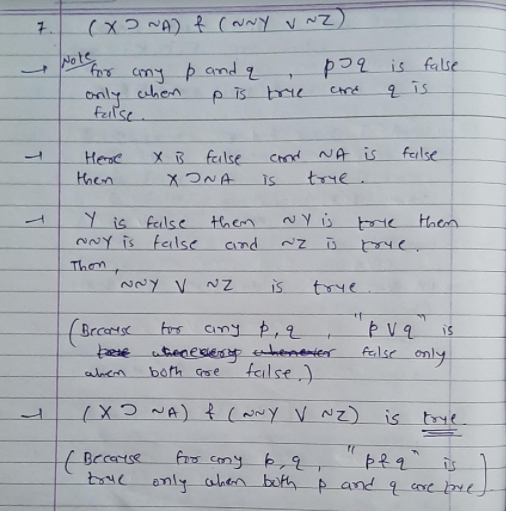 7. (X ⊃ ~A) & (~~Y ∨ ~Z)
→ Note for any p and q , p⊃q is false
only when p is true and q is
false.
→ Here X is false and ~A is false
then X ⊃ ~A is true.
→ Y is false then ~Y is true then
~~Y is false and ~Z is true.
Then,
~~Y ∨ ~Z is true.
(Because for any p, q , "p ∨ q" is
false only
when both are false.)
→ (X ⊃ ~A) & (~~Y ∨ ~Z) is true.
(Because for any p, q , "p & q" is
true only when both p and q are true)